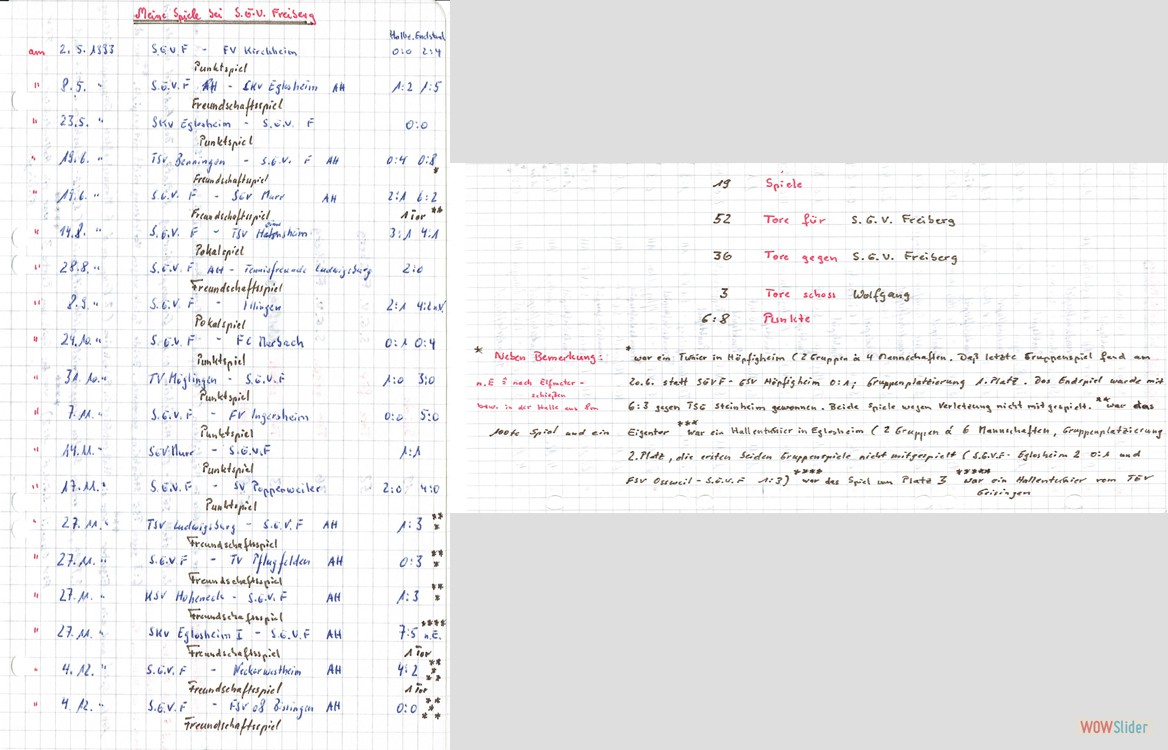 Meine Spiele bei S.G.V. Freiberg
Halbz. Endstand
am 2.5.1993 S.G.V.F - FV Kirchheim 0:0 2:4
Punktspiel
" 8.5. " S.G.V.F AH - SKV Eglosheim AH 1:2 1:5
Freundschaftsspiel
" 23.5. " SKV Eglosheim - S.G.V. F 0:0
Punktspiel
" 19.6. " TSV Benningen - S.G.V. F AH 0:4 0:8
*
Freundschaftsspiel
" 19.6. " S.G.V. F - SGV Murr AH 2:1 6:2
Freundschaftsspiel 1 Tor **
" 14.8. " S.G.V. F - TSV 3:1 4:1
Pokalspiel
" 28.8. " S.G.V.F AH - Tennisfreunde Ludwigsburg 2:0
Freundschaftsspiel
" 8.9. " S.G.V. F - Illingen 2:1 4:2 n.V.
Pokalspiel
" 24.10. " S.G.V. F - FC Marbach 0:1 0:4
Punktspiel
" 31.10. " TV Möglingen - S.G.V.F 1:0 3:0
Punktspiel
" 7.11. " S.G.V.F - FV Ingersheim 0:0 5:0
Punktspiel
" 14.11. " SGV Murr - S.G.V.F 1:1
Punktspiel
" 17.11. " S.G.V.F - SV Poppenweiler 2:0 4:0
Punktspiel
" 27.11. " TSV Ludwigsburg - S.G.V.F AH 1:3 ***
Freundschaftsspiel
" 27.11. " S.G.V.F - TV Pflugfelden AH 0:3 ***
Freundschaftsspiel
" 27.11. " KSV Hoheneck - S.G.V.F AH 1:3 ***
Freundschaftsspiel
" 27.11. " SKV Eglosheim I - S.G.V.F AH 7:5 n.E. ****
Freundschaftsspiel 1 Tor
" 4.12. " S.G.V.F - Neckarwestheim AH 4:2 *****
Freundschaftsspiel 1 Tor
" 4.12. " S.G.V.F - FSV 08 Bissingen AH 0:0 *****
Freundschaftsspiel
19 Spiele
52 Tore für S.G.V. Freiberg
36 Tore gegen S.G.V. Freiberg
3 Tore schoss Wolfgang
6:8 Punkte
* Neben Bemerkung: * war ein Tunier in Höpfigheim (2 Gruppen à 4 Mannschaften. Daß letzte Gruppenspiel fand am
n.E = nach Elfmeter-
schießen
bzw. in der Halle aus 8m
20.6. statt SGVF - GSV Höpfigheim 0:1; Gruppenplatzierung 1.Platz. Das Endspiel wurde mit
6:3 gegen TSG Steinheim gewonnen. Beide Spiele wegen Verletzung nicht mitgespielt. ** war das
100te Spiel und ein Eigentor *** War ein Hallentunier in Eglosheim (2 Gruppen à 6 Mannschaften, Gruppenplatzierung
2.Platz, die ersten beiden Gruppenspiele nicht mitgespielt (S.G.V.F - Eglosheim 2 0:1 und
FSV Ossweil - S.G.V.F 1:3) **** war das Spiel um Platz 3 ***** War ein Hallentunier vom TGV
WOWSlider